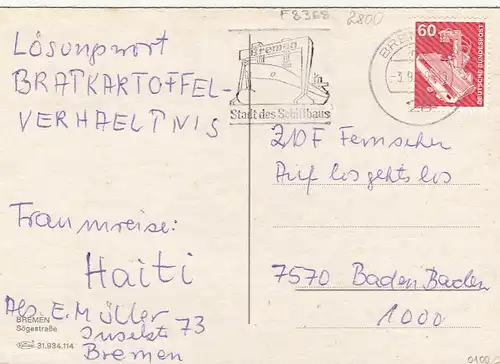 F8368 2800
Lösungswort
BRATKARTOFFEL-
VERHAELTNIS
Traumreise:
Haiti
Abs. E. Müller
73
Bremen
BREMEN
Sögestraße
31.934.114
Bremen
Stadt des Schiffbaus
60
DEUTSCHE BUNDESPOST
ZDF Fernsehen
Auf los gehts los
7570 Baden Baden
1000